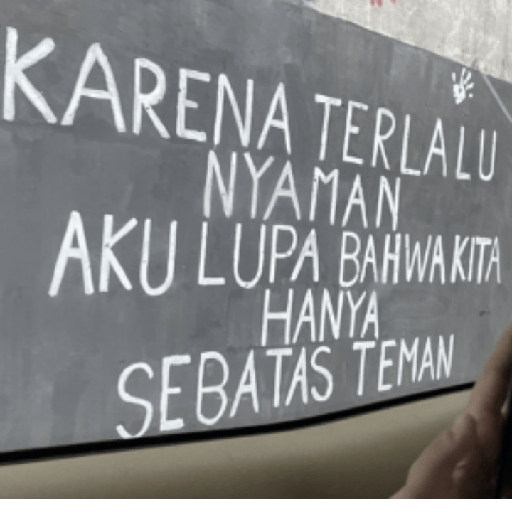 KARENA TERLALU
NYAMAN
AKU LUPA BAHWA KITA
HANYA
SEBATAS TEMAN